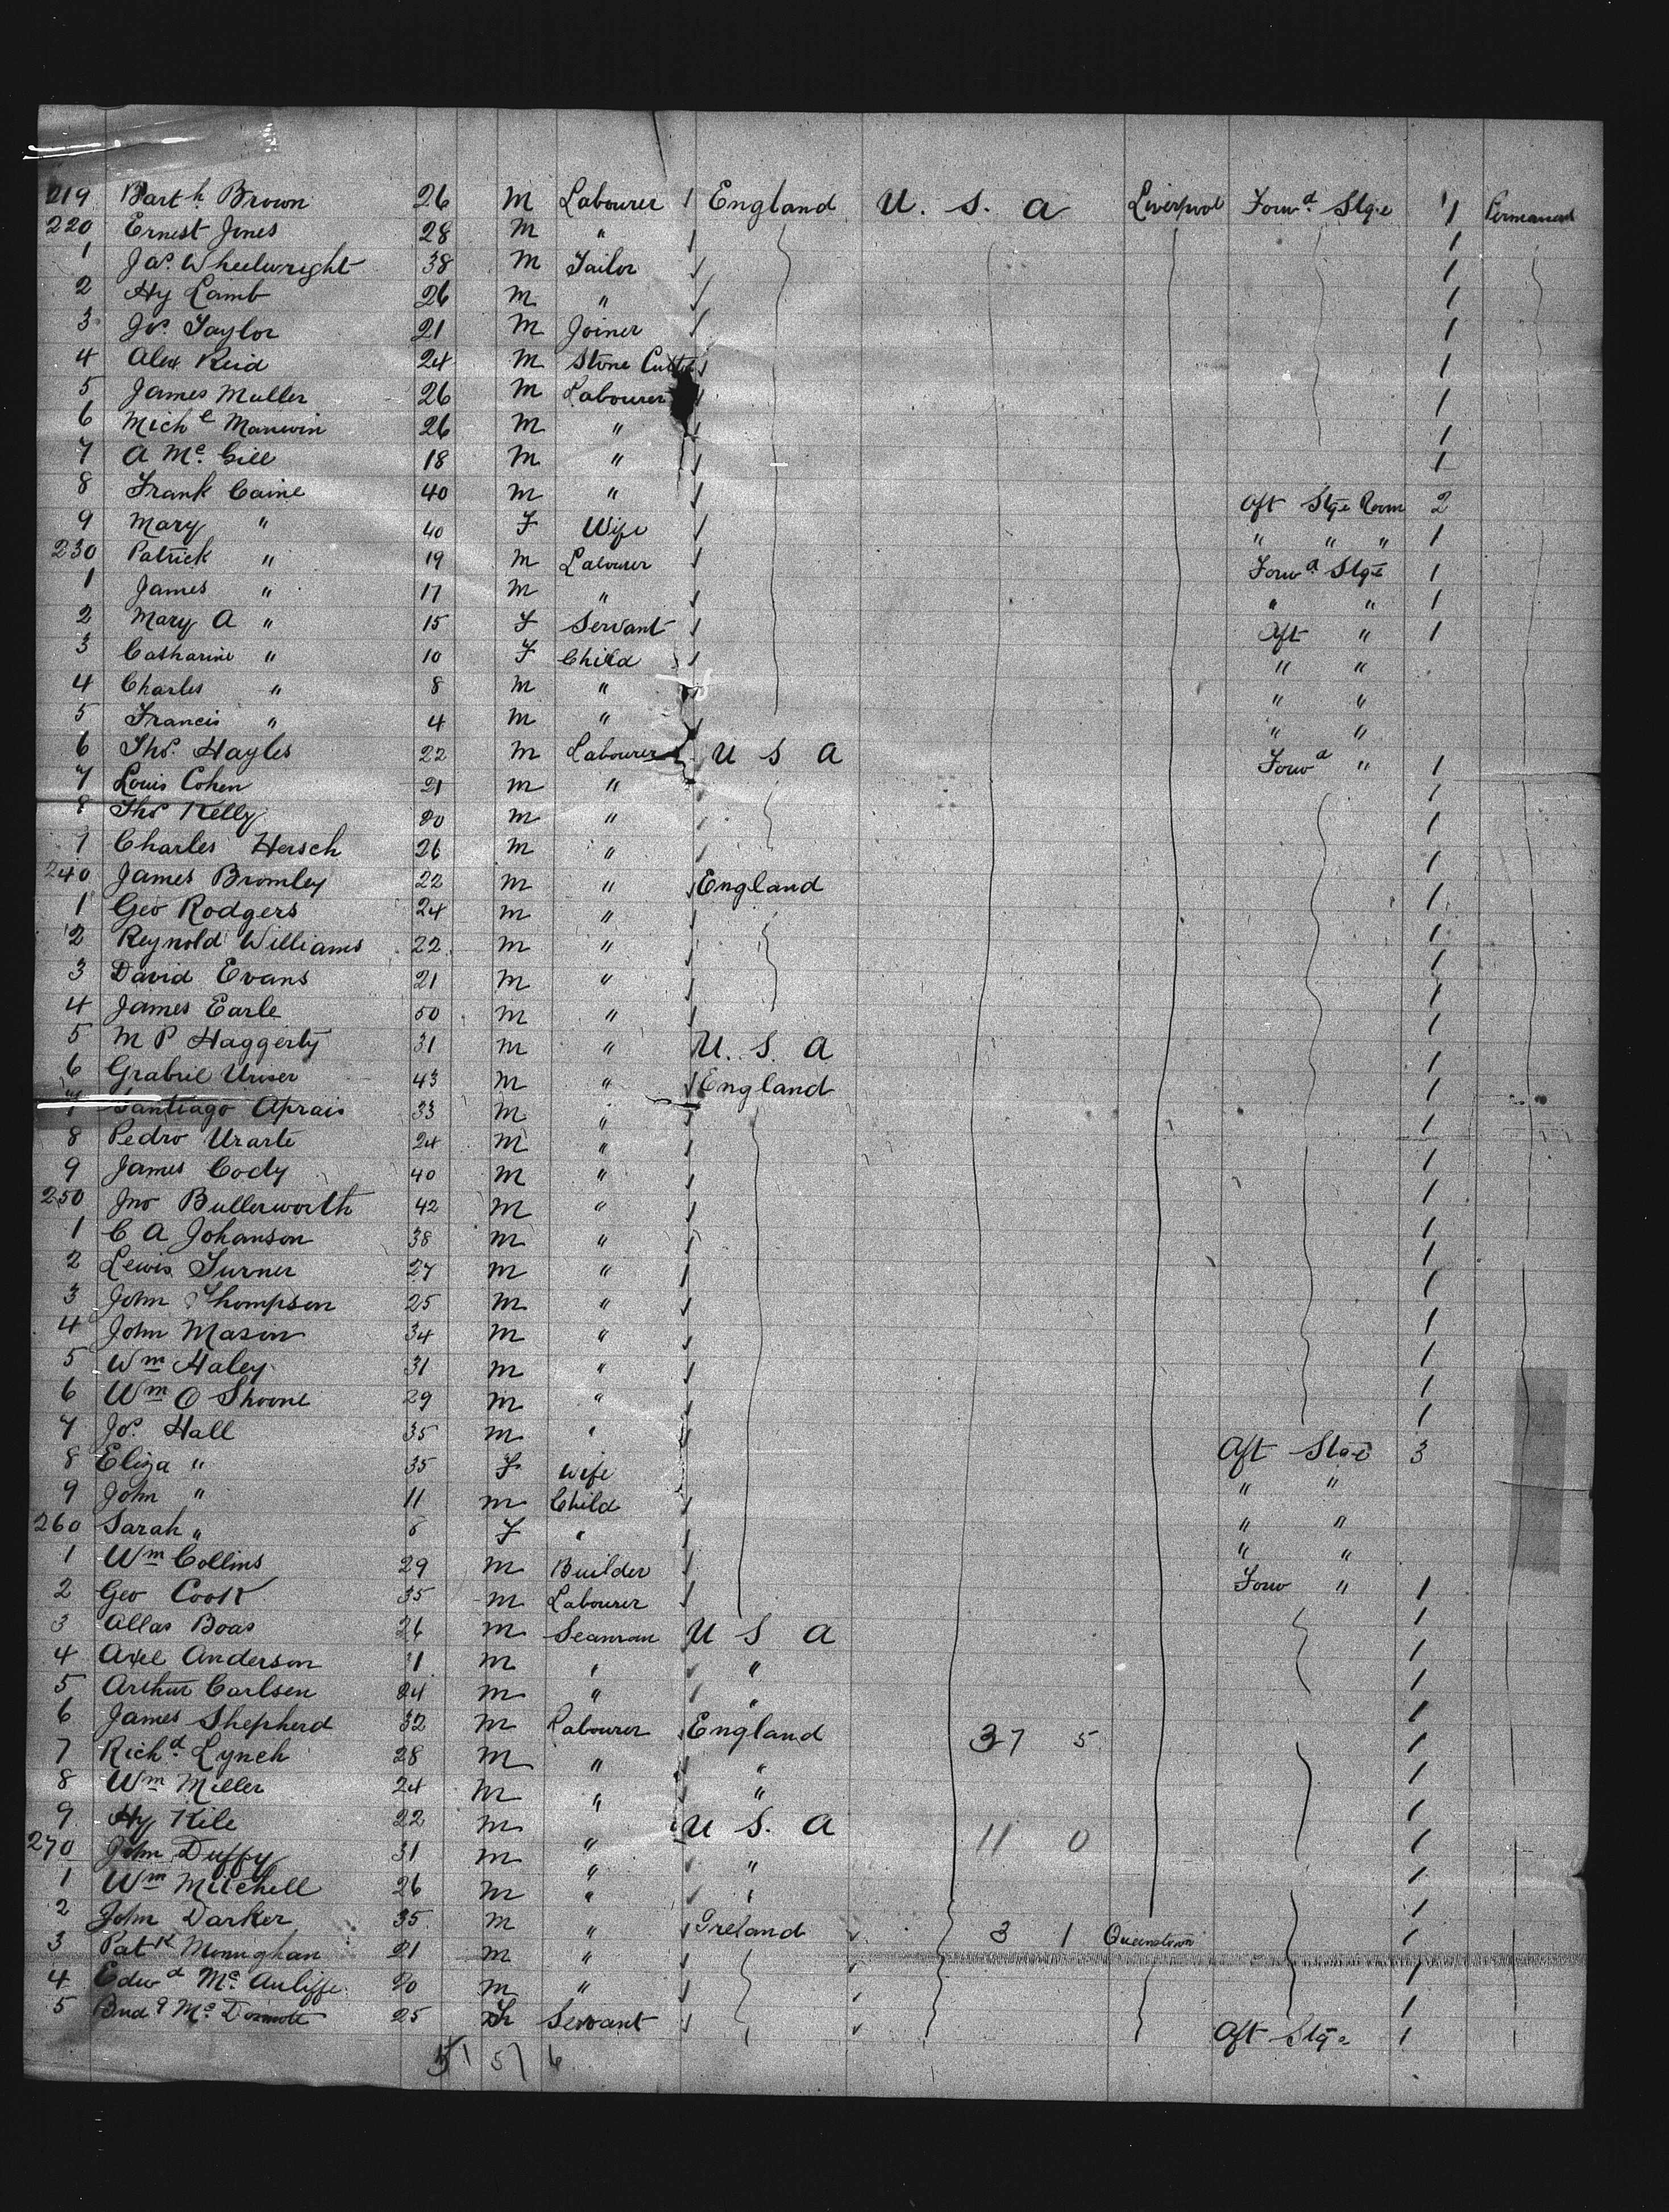 219 Barth Brown 26 M Labourer England U. S. A Liverpool Forwd Stge 1 Permanent
220 Ernest Jones 28 M " 1
1 Jas. Wheelwright 38 M Tailor 1
2 Hy Lamb 26 M " 1
3 Jos. Taylor 21 M Joiner 1
4 Alex Reid 24 M Stone Cutter 1
5 James Muller 26 M Labourer 1
6 Michl 26 M " 1
7 A Mc. Gill 18 M " 1
8 Frank Caine 40 M " Aft Stge Room 2
9 Mary " 40 F Wife " " " 1
230 Patrick " 19 M Labourer Forwd Stge 1
1 James " 17 M " " " 1
2 Mary A " 15 F Servant Aft " 1
3 Catharine " 10 F Child " "
4 Charles " 8 M " " "
5 Francis " 4 M " " "
6 Thos. Hayles 22 M Labourer U S A Forwd " 1
7 Louis Cohen 21 M " 1
8 Thos Kelly 20 M " 1
9 Charles Hersch 26 M " 1
240 James Bromley 22 M " England 1
1 Geo Rodgers 24 M " 1
2 Reynold Williams 22 M " 1
3 David Evans 21 M " 1
4 James Earle 50 M " 1
5 M P Haggerty 31 M " U. S. A 1
6 Grabril 43 M " England 1
7 Santiago Aprais 33 M " 1
8 Pedro Urarte 24 M " 1
9 James Cody 40 M " 1
250 Jno Bullerworth 42 M " 1
1 C A Johanson 38 M " 1
2 Lewis Turner 27 M " 1
3 John Thompson 25 M " 1
4 John Mason 34 M " 1
5 Wm Haley 31 M " 1
6 Wm O 29 M " 1
7 Jos. Hall 35 M " Aft Stge 3
8 Eliza " 35 F Wife " "
9 John " 11 M Child " "
260 Sarah " F " " "
1 Wm Collins 29 M Builder Forw " 1
2 Geo Cook 35 M Labourer 1
3 Allas Boas 26 M Seaman U S A 1
4 Axel Anderson M " " 1
5 Arthur Carlsen 24 M " " 1
6 James Shepherd 32 M Labourer England 37 5 1
7 Richd. Lynch 28 M " " 1
8 Wm Miller 24 M " " 1
9 Hy Kile 22 M " U S. A 11 0 1
270 John Duffy 31 M " " 1
1 Wm Mitchell 26 M " " 1
2 John Darker 35 M " Ireland 3 1 Queenstown 1
3 Patk Monughan 21 M " 1
4 Edwd Mc. Auliffe 20 M " 1
5 Mc. 25 F Servant Aft Stge 1
51 51 6